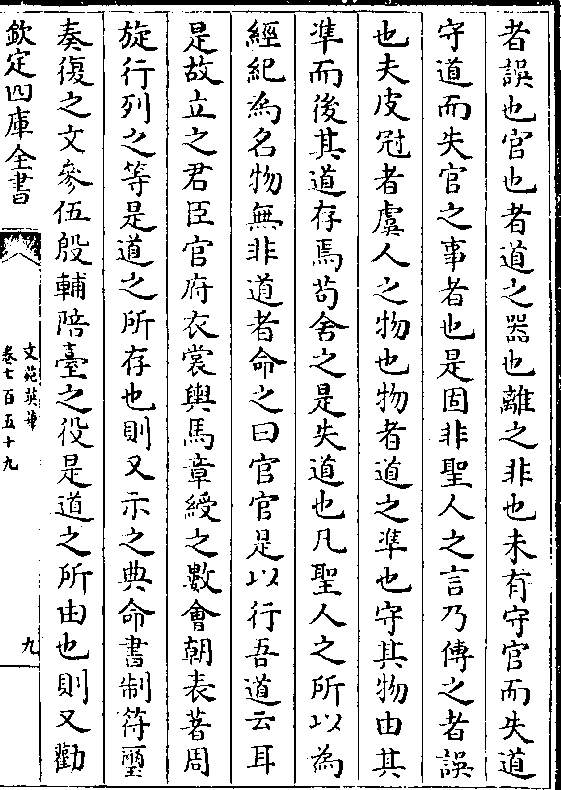 者誤也官也者道之器也離之非也未有守官而失道
守道而失官之事者也是固非聖人之言乃傳之者誤
也夫皮冠者虞人之物也物者道之準也守其物由其
準而後其道存焉苟舍之是失道也凡聖人之所以為
經紀為名物無非道者命之曰官官是以行吾道云耳
是故立之君臣官府衣裳輿馬章綬之數會朝表著周
旋行列之等是道之所存也則又示之典命書制符璽
奏復之文參伍殷輔陪臺之役是道之所由也則又勸
欽定四庫全書
文苑英華
卷七百五十九
九